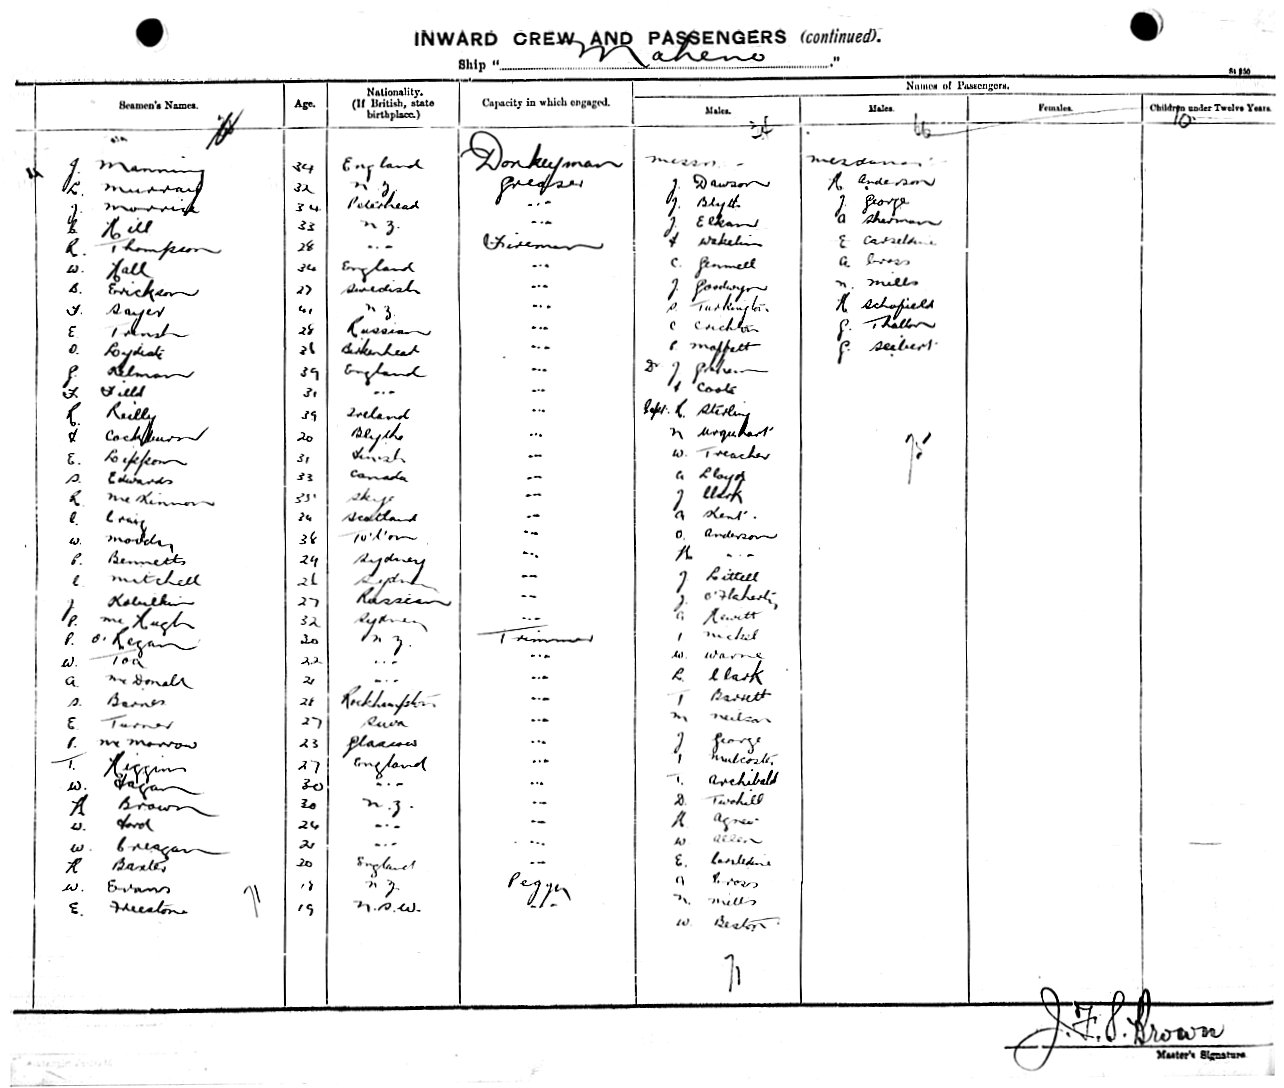 INWARD CREW AND PASSENGERS (continued).
Ship "Maheno."
Names of Passengers.
Seamen's Names. Age. Nationality. (If British, state birthplace.) Capacity in which engaged. Males. Males. Females. Children under Twelve Years.
J. Manning 34 England Donkeyman Messrs
L. Murray 32 N.Z. Greaser J. Dawson R Anderson
J. Morrice 34 Peterhead -..- J. Blyth J. George
Hill 33 N.Z. -..- J. Elkan A Sherman
R. Thompson 28 -..- Fireman Wakelin E Carseldine
W. Hall 34 England -..- C. Gemmell A Cross
B. Erickson 27 Swedish -..- J. Goodwyn N. Mills
F. Sayer 41 N.Z. -..- S. Turkington R Schofield
E 28 Russian -..- C Crichton G. Thallon
O. Lydiate 26 Birkenhead -..- P Moffatt G. Seibert
G. Kelman 39 England -..- Dr J. Graham
F. Field 31 -..- -..- Coote
R. Reilly 39 Ireland -..- Capt. R. Sterling
Cockburn 20 Blythe -..- N Urquhart
E. 31 Finish -..- W. Treacher
S. Edwards 33 Canada -..- A Lloyd
R McKinnon 35 Skye -..- J Clark
C. Craig 24 Scotland -..- A Kent.
W. Moody 38 -..- O. Anderson
P. Bennetts 29 Sydney -..- R -..-
C Mitchell 26 Sydney -..- J Littell
J 27 Russian -..- J. O'Flaherty
P. McHugh 32 Sydney -..- A Hewitt
P. O'Regan 30 N.Z. Trimmer Nickel
W. Tod 22 -..- -..- W. Warne
A McDonald 21 -..- -..- L. Clark
S. Barnes 28 Rockhampton -..- T Barnett
E Turner 27 Suva -..- M Neilson
P. McMorrow 23 Glasgow -..- J George
T. Higgins 27 England -..- Mulcaster
W. Fagan 30 -..- -..- T. Archibald
R Brown 30 N.Z. -..- D. Twohill
W. Ford 24 -..- -..- R Agnew
W. Creagan 21 -..- -..- W Allen
R Baxter 20 England -..- E. Carseldine
W. Evans 18 N.Z. Peggy A Cross
E. Freestone 19 N.S.W. -..- N. Mills
W. Beston
71
71
75
J. F. S. Brown
Master's Signature.